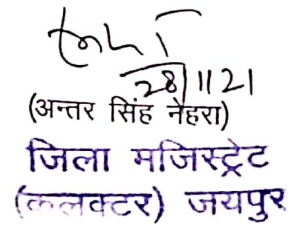 28/11/21
(अन्तर सिंह नेहरा)
जिला मजिस्ट्रेट
(कलक्टर) जयपुर